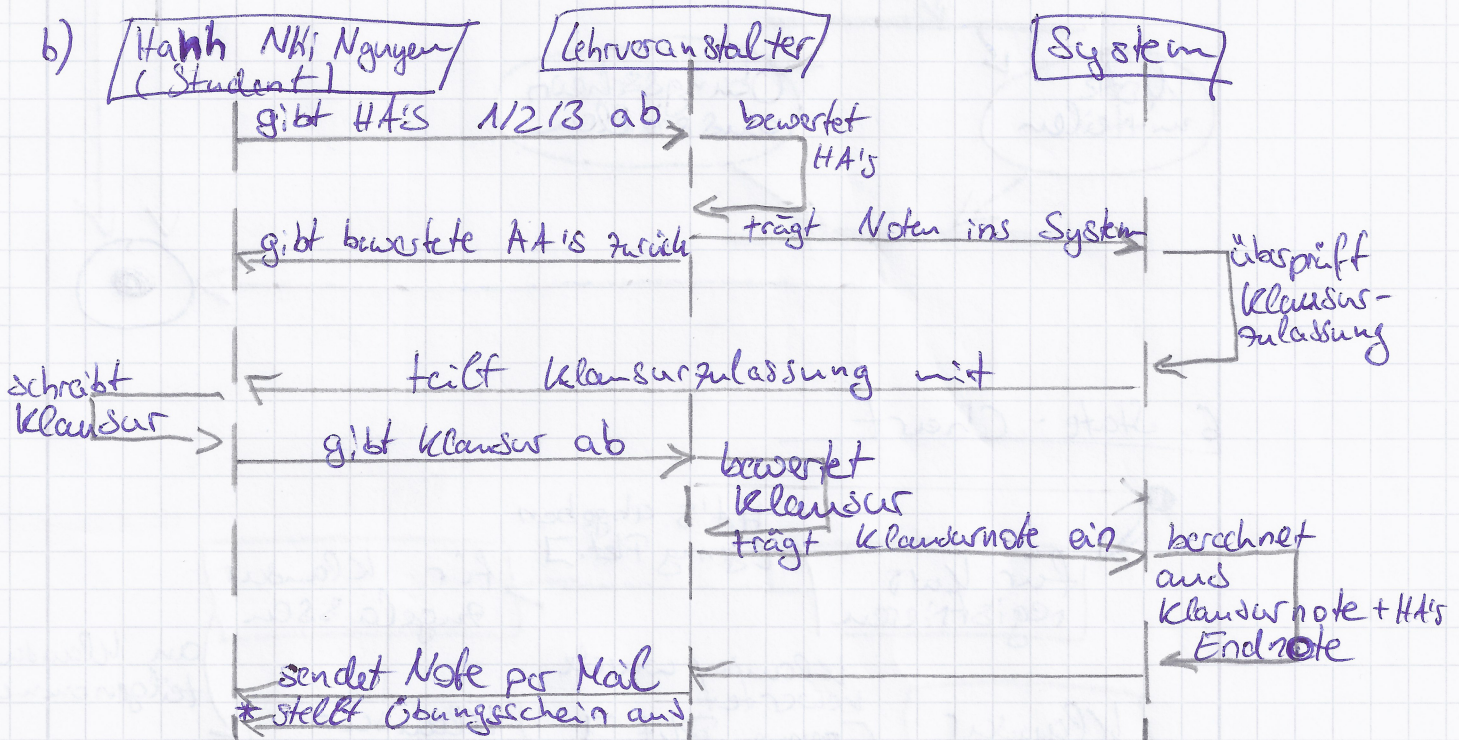 b) Hanh NKi Nguyen Lehrveranstalter System
(Student)
gibt HA's 1/2/3 ab bewertet
HA's
gibt bewertete AA's zurück trägt Noten ins System überprüft
Klausur-
zulassung
teilt Klausurzulassung mit
schreibt
Klausur
gibt Klausur ab bewertet
Klausur
trägt Klausurnote ein berechnet
aus
Klausurnote + HA's
Endnote
sendet Note per Mail
* stellt Übungsschein aus